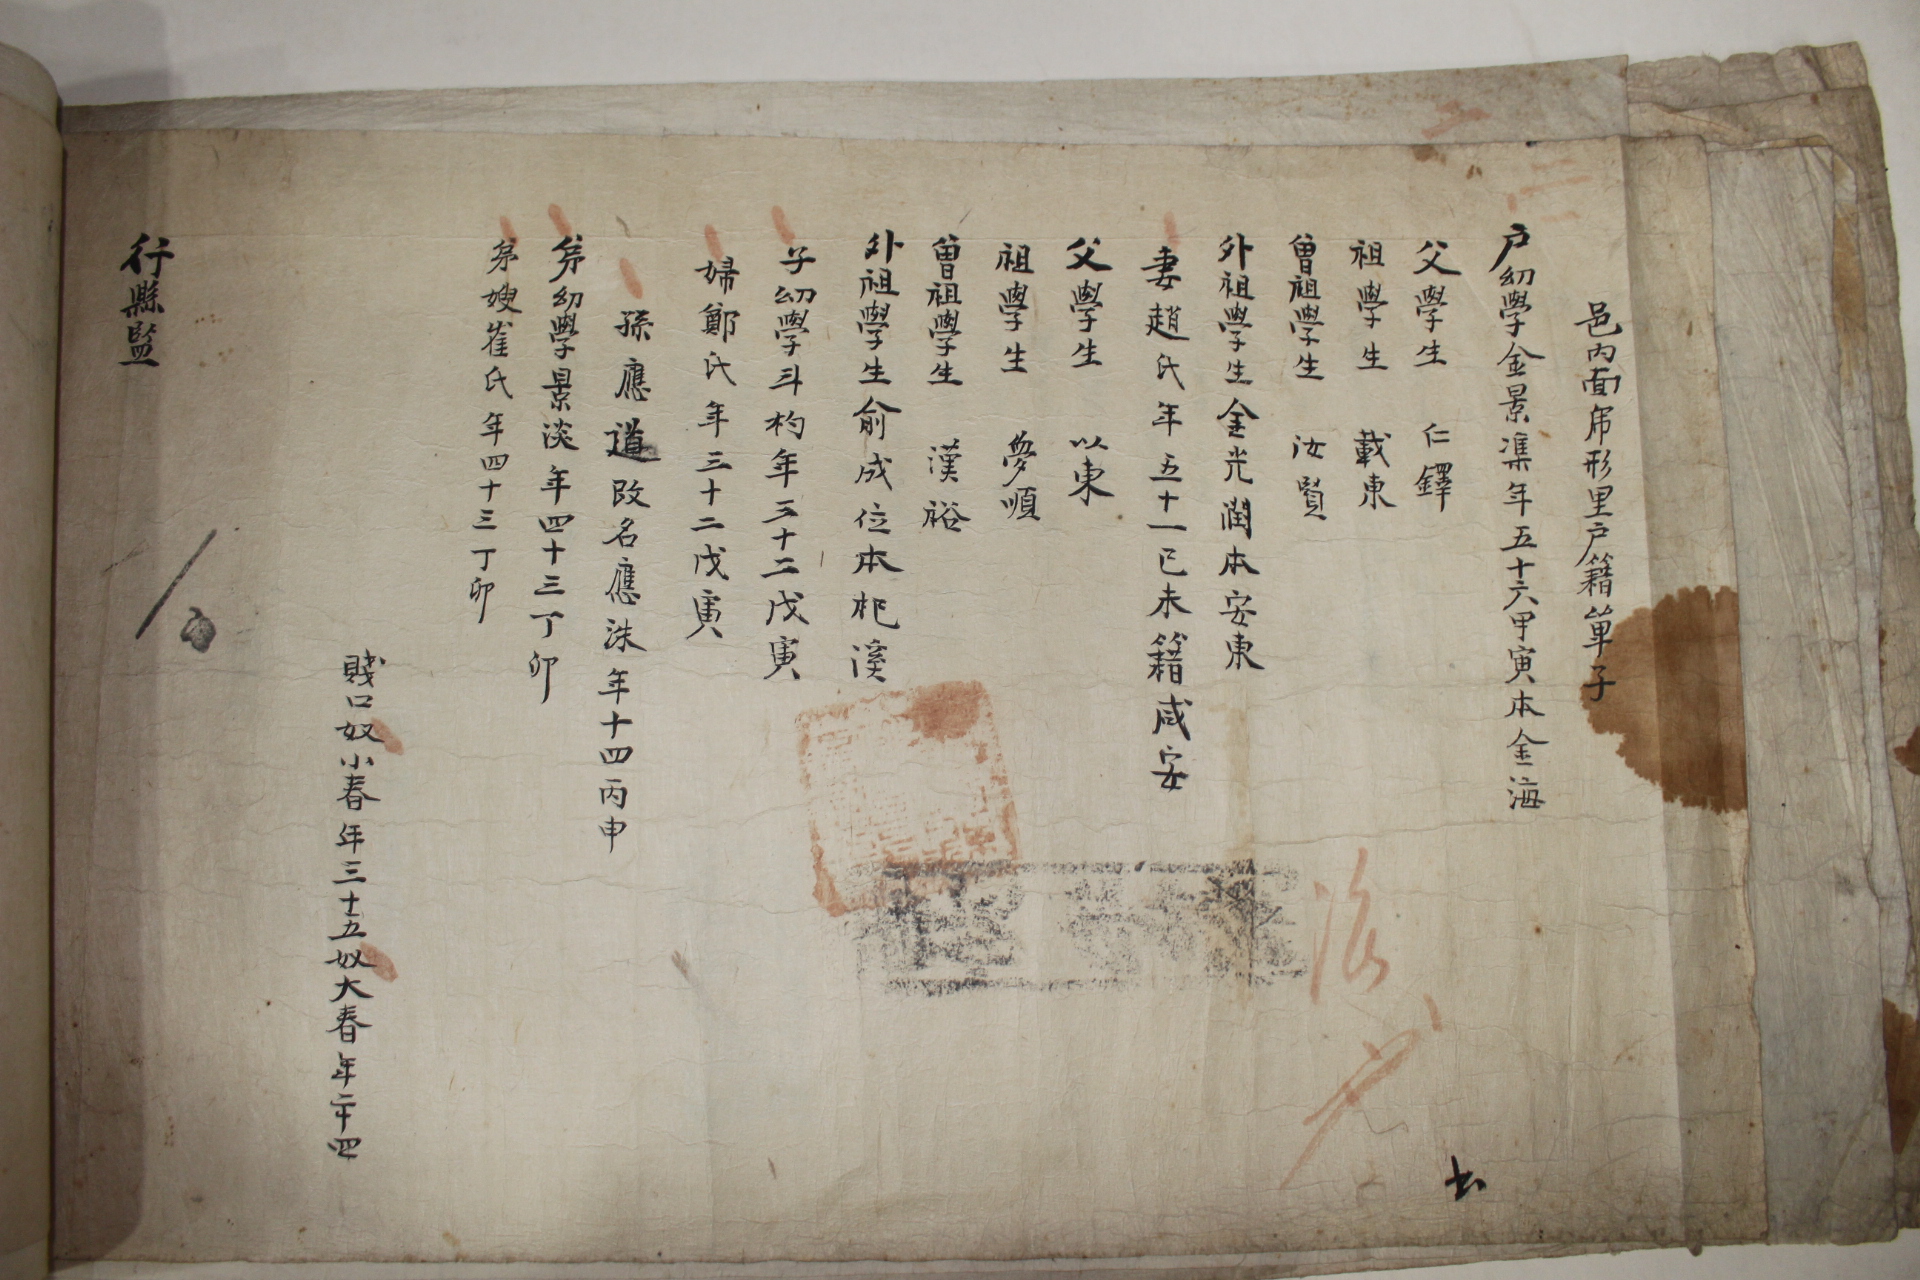 邑内面帍形里户籍單子
户幼學金景准年五十六甲寅本金海
父學生 仁鐸
祖學生 載東
曾祖學生 汝賢
外祖學生金光潤本安東
妻趙氏年五十一己未籍咸安
父學生 以東
祖學生 夢順
曾祖學生 漢裕
外祖學生俞成位本杞溪
子幼學斗杓年三十二戊寅
婦鄭氏年三十二戊寅
孫應道改名應洙年十四丙申
弟幼學景淡年四十三丁卯
弟嫂崔氏年四十三丁卯
賤口奴小春年三十五奴大春年二十四
行縣監